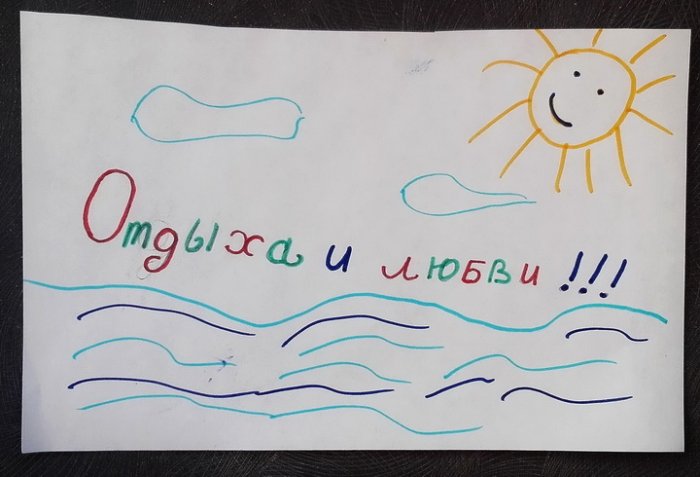 Отдыха и любви!!!